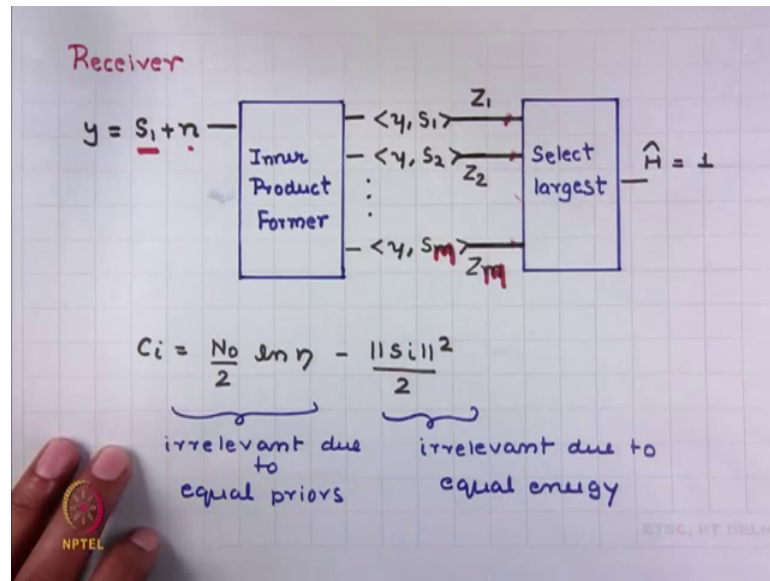 Receiver
y = S₁ + n
Inner
Product
Former
<y, S₁>
<y, S₂>
⋮
<y, Sm>
Z₁
Z₂
Zm
Select
largest
Ĥ = 1
Ci = N₀/2 ln η - ||Si||²/2
irrelevant due
to
equal priors
irrelevant due to
equal energy
NPTEL
ETSC, IIT DELHI